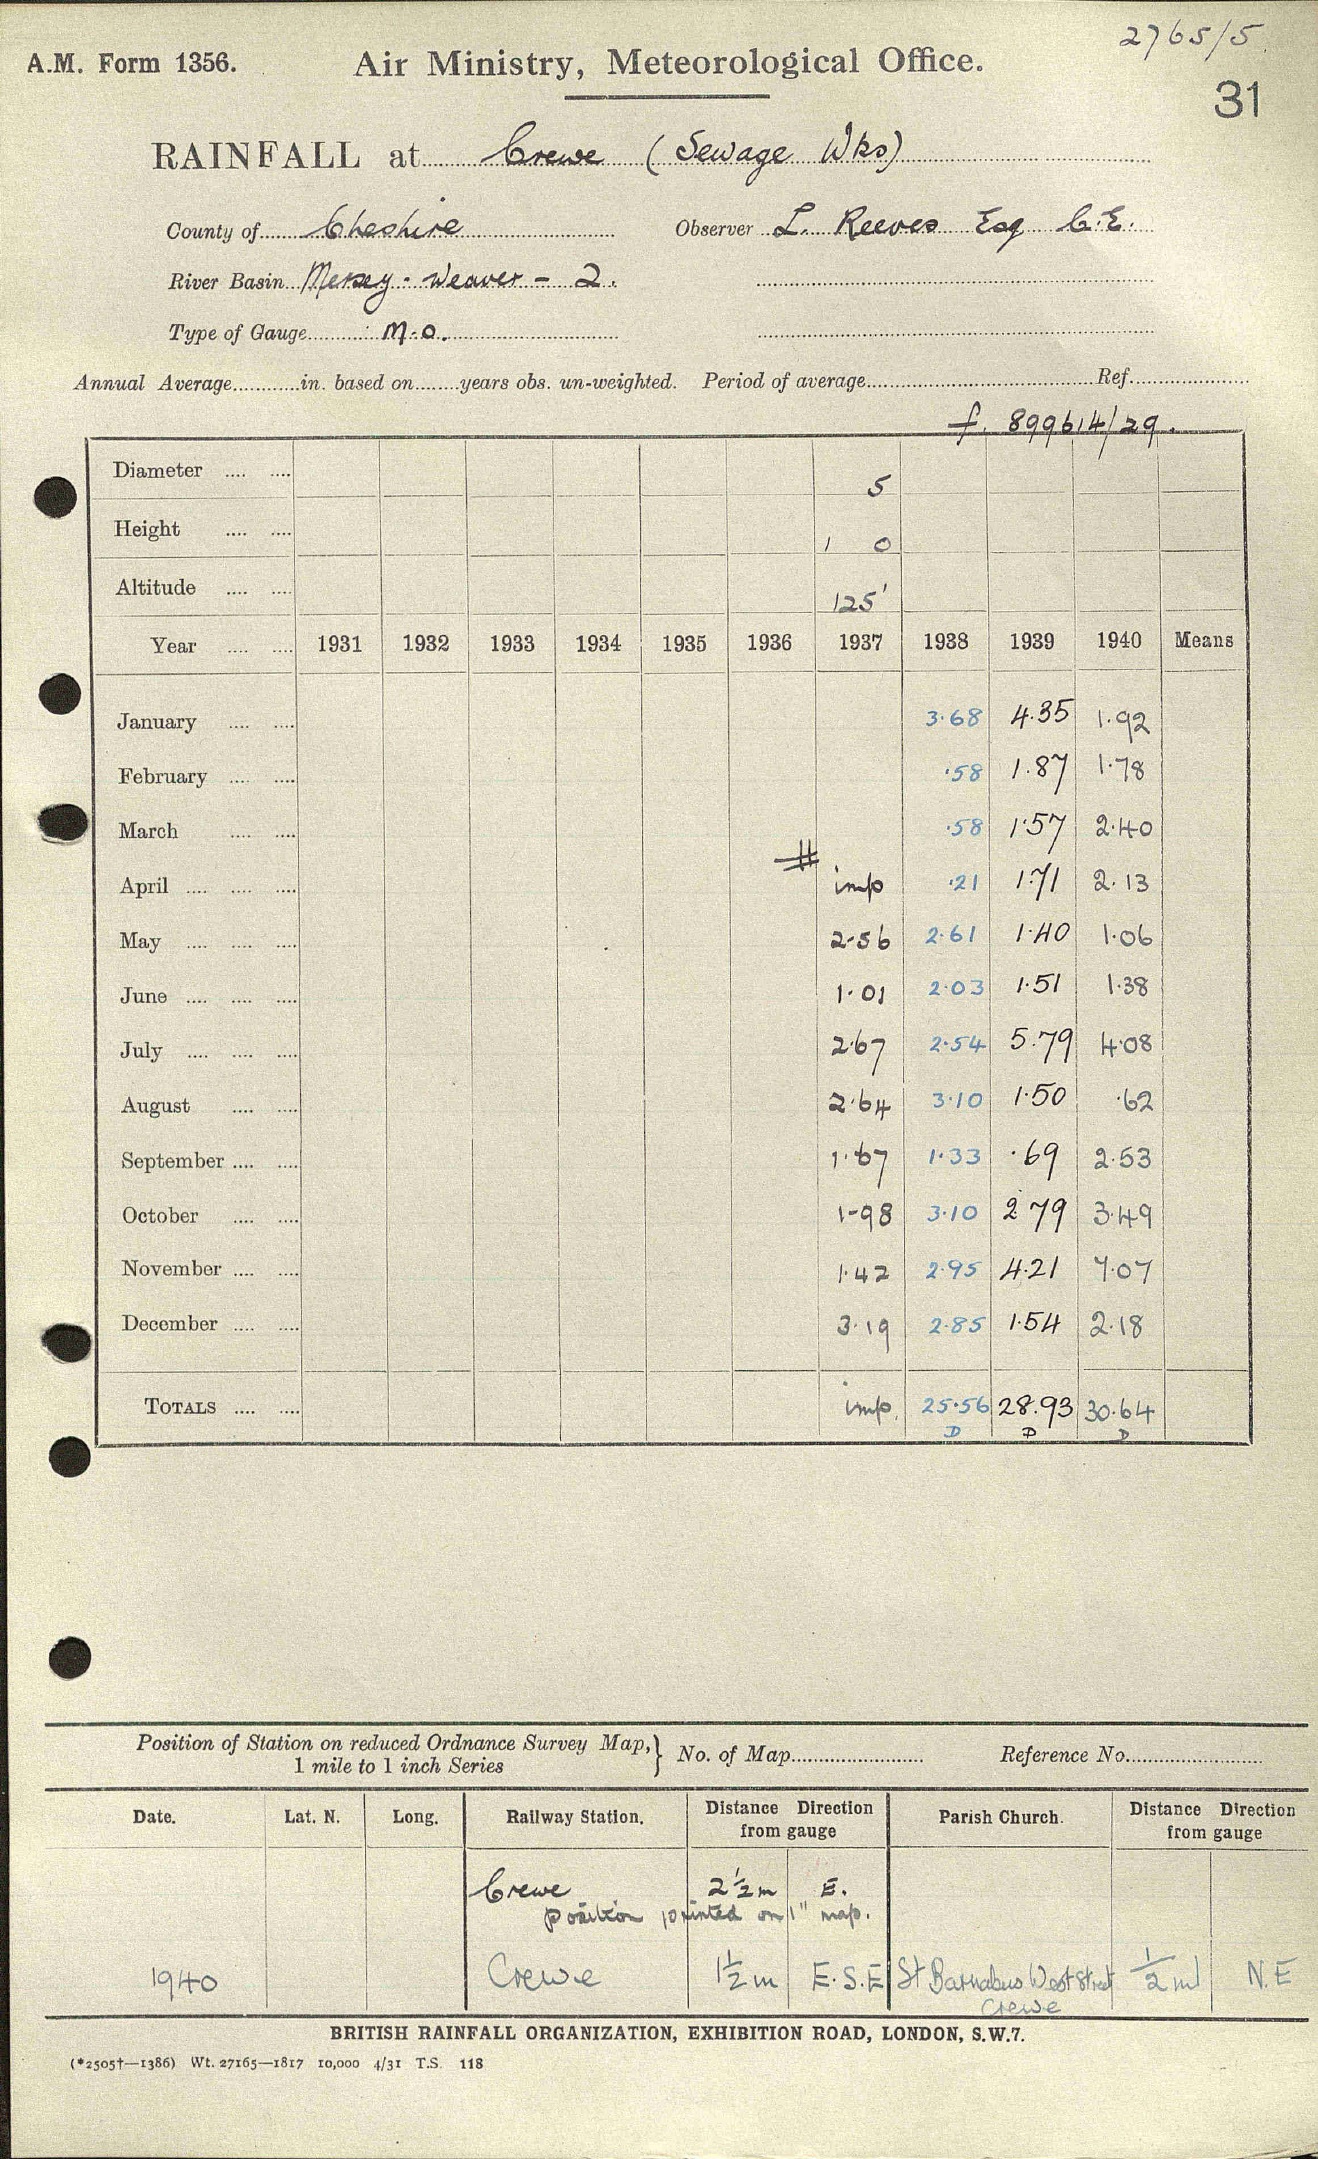 2765/5
A.M. Form 1356. Air Ministry, Meteorological Office.
31
RAINFALL at Crewe (Sewage Wks)
County of Cheshire Observer L. Reeves Esq C.E.
River Basin Mersey - Weaver - 2.
Type of Gauge M.O.
Annual Average in. based on years obs. un-weighted. Period of average Ref.
f. 899614/29.
Diameter 5
Height 1 0
Altitude 125'
Year 1931 1932 1933 1934 1935 1936 1937 1938 1939 1940 Means
January 3.68 4.35 1.92
February .58 1.87 1.78
March .58 1.57 2.40
April # imp .21 1.71 2.13
May 2.56 2.61 1.40 1.06
June 1.01 2.03 1.51 1.38
July 2.67 2.54 5.79 4.08
August 2.64 3.10 1.50 .62
September 1.67 1.33 .69 2.53
October 1.98 3.10 2.79 3.49
November 1.42 2.95 4.21 7.07
December 3.19 2.85 1.54 2.18
TOTALS imp. 25.56 28.93 30.64
D D D
Position of Station on reduced Ordnance Survey Map, } No. of Map Reference No.
1 mile to 1 inch Series
Date. Lat. N. Long. Railway Station. Distance Direction Parish Church. Distance Direction
from gauge from gauge
Crewe 2½ m E.
position pointed on 1" map.
1940 Crewe 1½ m E.S.E St Barnabus West Street ½ m N.E
Crewe
BRITISH RAINFALL ORGANIZATION, EXHIBITION ROAD, LONDON, S.W.7.
(*2505†—1386) Wt. 27165—1817 10,000 4/31 T.S. 118